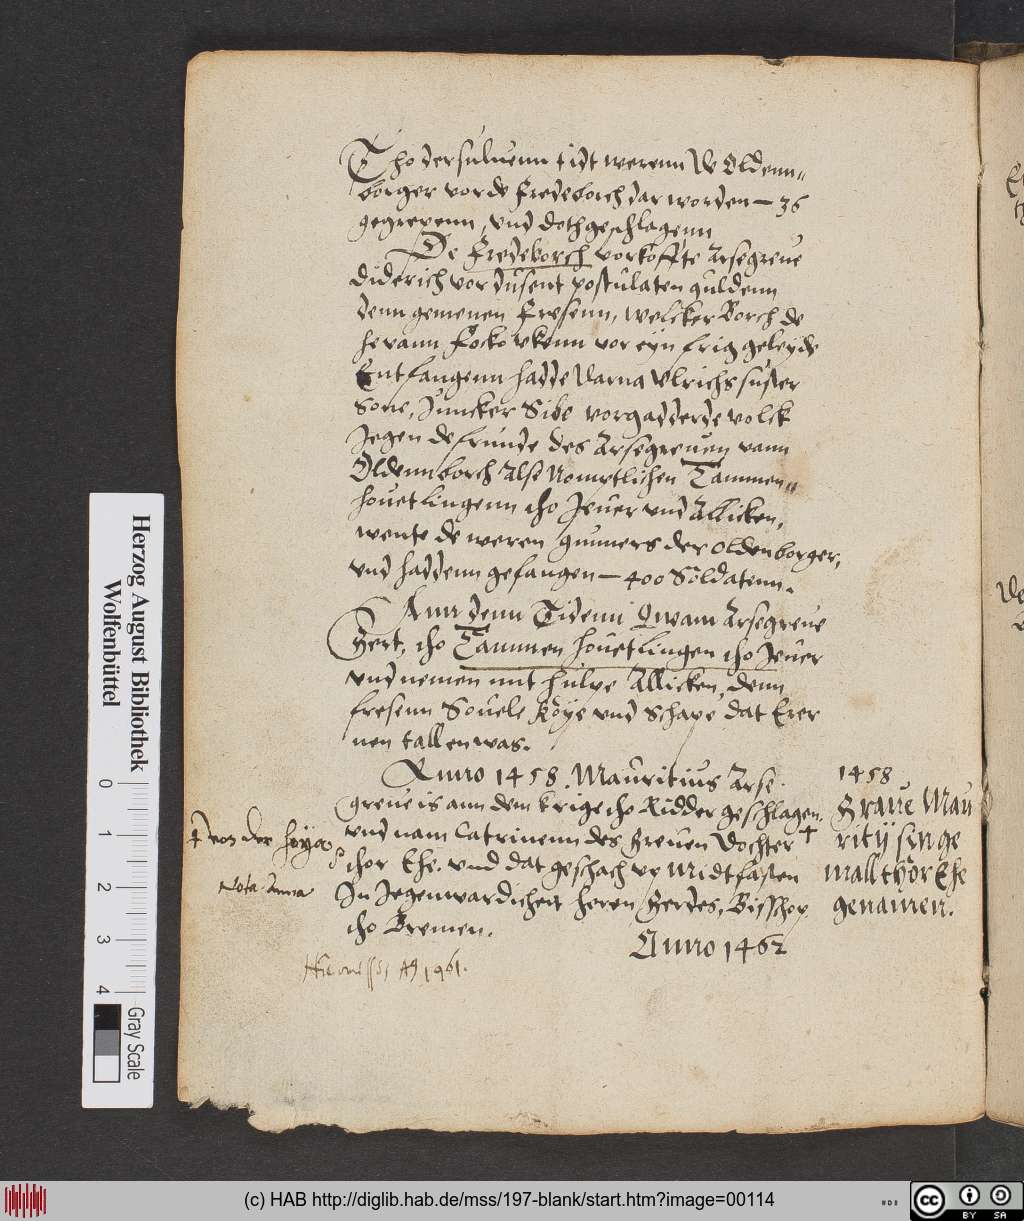 Tho dersuluenn tidt werenn VV Oldenn„
borger vor de Fredeborch dar worden — 36
gegrepenn, vnd dothgeschlagenn
De Fredeborch vorkoffte Arsegreue
Diderich vor dusent postulaten guldenn
denn gemenen Fresenn, welcker Borch de
he vann Focko vkenn vor eyn frig geleyde
Entfangenn hadde Narna Vlrichs suster
sone, Juncker Sibo vorgadderde volck
Jegen de frunde des Arsegreuen vann
Oldennborch Alse Nomtlichen Tammen„
houetlingenn tho Jeuer vnd Allicken,
wente de weren gunners der oldenborger,
vnd haddenn gefangen — 400 Soldatenn.
Ann denn Tidenn Qwam Arsegreue
Gert, tho Tammen houetlingen tho Jeuer
vnd nemen mit hulpe Allicken, denn
fresenn Souele Köye vnd Schape dat Erer
nen tall en was.
Anno 1458. Mauritius Arse
greue is ann dem krige tho Ridder geschlagen.
vnd nam Catrinenn des Greuen Dochter †
thor Ehe. vnd dat geschach vp midtfasten
In Jegenwardicheit heren Gerdes, Bisschop
tho Bremen.
Anno 1462
1458
Graue Mau
ritij sin ge
mall thor Ehe
genamen.
† von der Hoya
Nota. Anna
Herzog August Bibliothek
Wolfenbüttel
0 1 2 3 4
Gray Scale
(c) HAB http://diglib.hab.de/mss/197-blank/start.htm?image=00114
cc BY SA